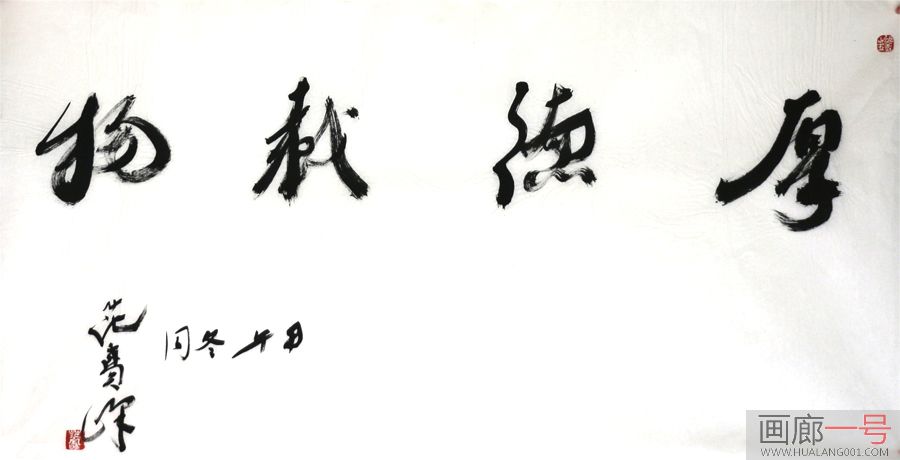 厚德载物
甲午冬月
范
画廊一号
WWW.HUALANG001.COM